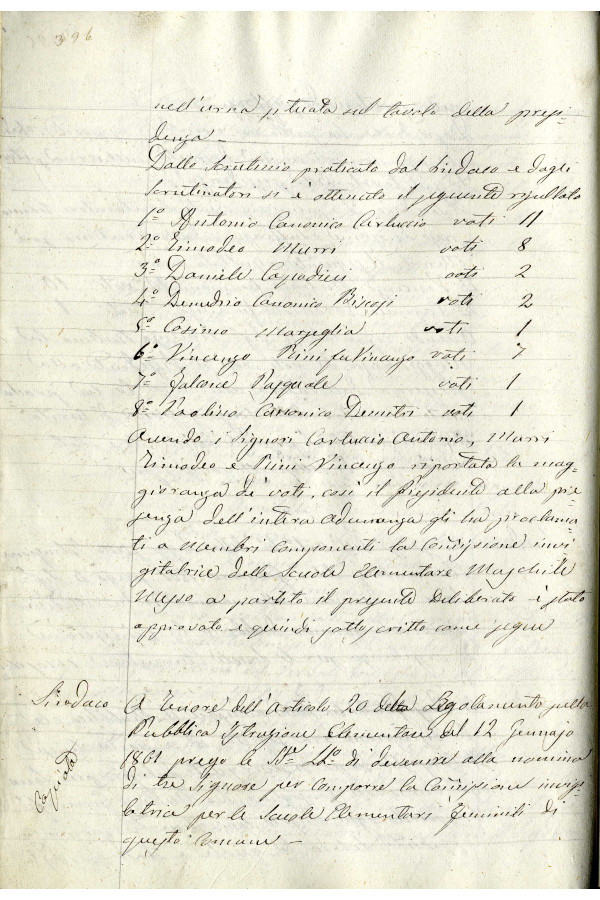 396
nell'urna situata sul tavolo della presi-
denza –
Dallo Scrutinio praticato dal Sindaco e dagli
Scrutinatori si è ottenuto il seguente risultato
1º Antonio Canonico Carluccio voti 11
2º Timodeo Murri voti 8
3º Daniele Capodieci voti 2
4º Demedrio Canonico Biscosi voti 2
5º Cosimo Marseglia voti 1
6º Vincenzo Pini fu Vincenzo voti 7
7º Falcone Pasquale voti 1
8º Paolino Canonico Demitri voti 1
Avendo i Signori Carluccio Antonio, Murri
Timodeo e Pini Vincenzo riportata la mag-
gioranza de' voti, così il Presidente alla pre-
senza dell'intera adunanza gli ha proclama-
ti a membri componenti la Com̄issione invi-
gilatrice delle Scuole Elementare Maschile
Messo a partito il presente Deliberato è stato
approvato e quindi sottoscritto come segue
Sindaco A tenore dell'Articolo 20 della Regolamento sulla
Pubblica Istruzione Elementare del 12 Gennajo
1861 prego le SS.VV. Ill.me di devenire alla nomina
di tre Signore per comporre la Com̄issione invigi-
latrice per le Scuole Elementari feminili di
Copiata
questo Comune –